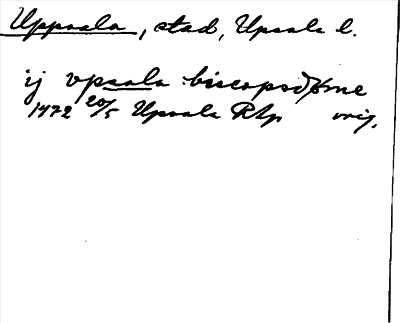 Uppsala, stad, Upsala l.
ij vpsala biscopsdøme
1472 20/5 Upsala RAp orig.